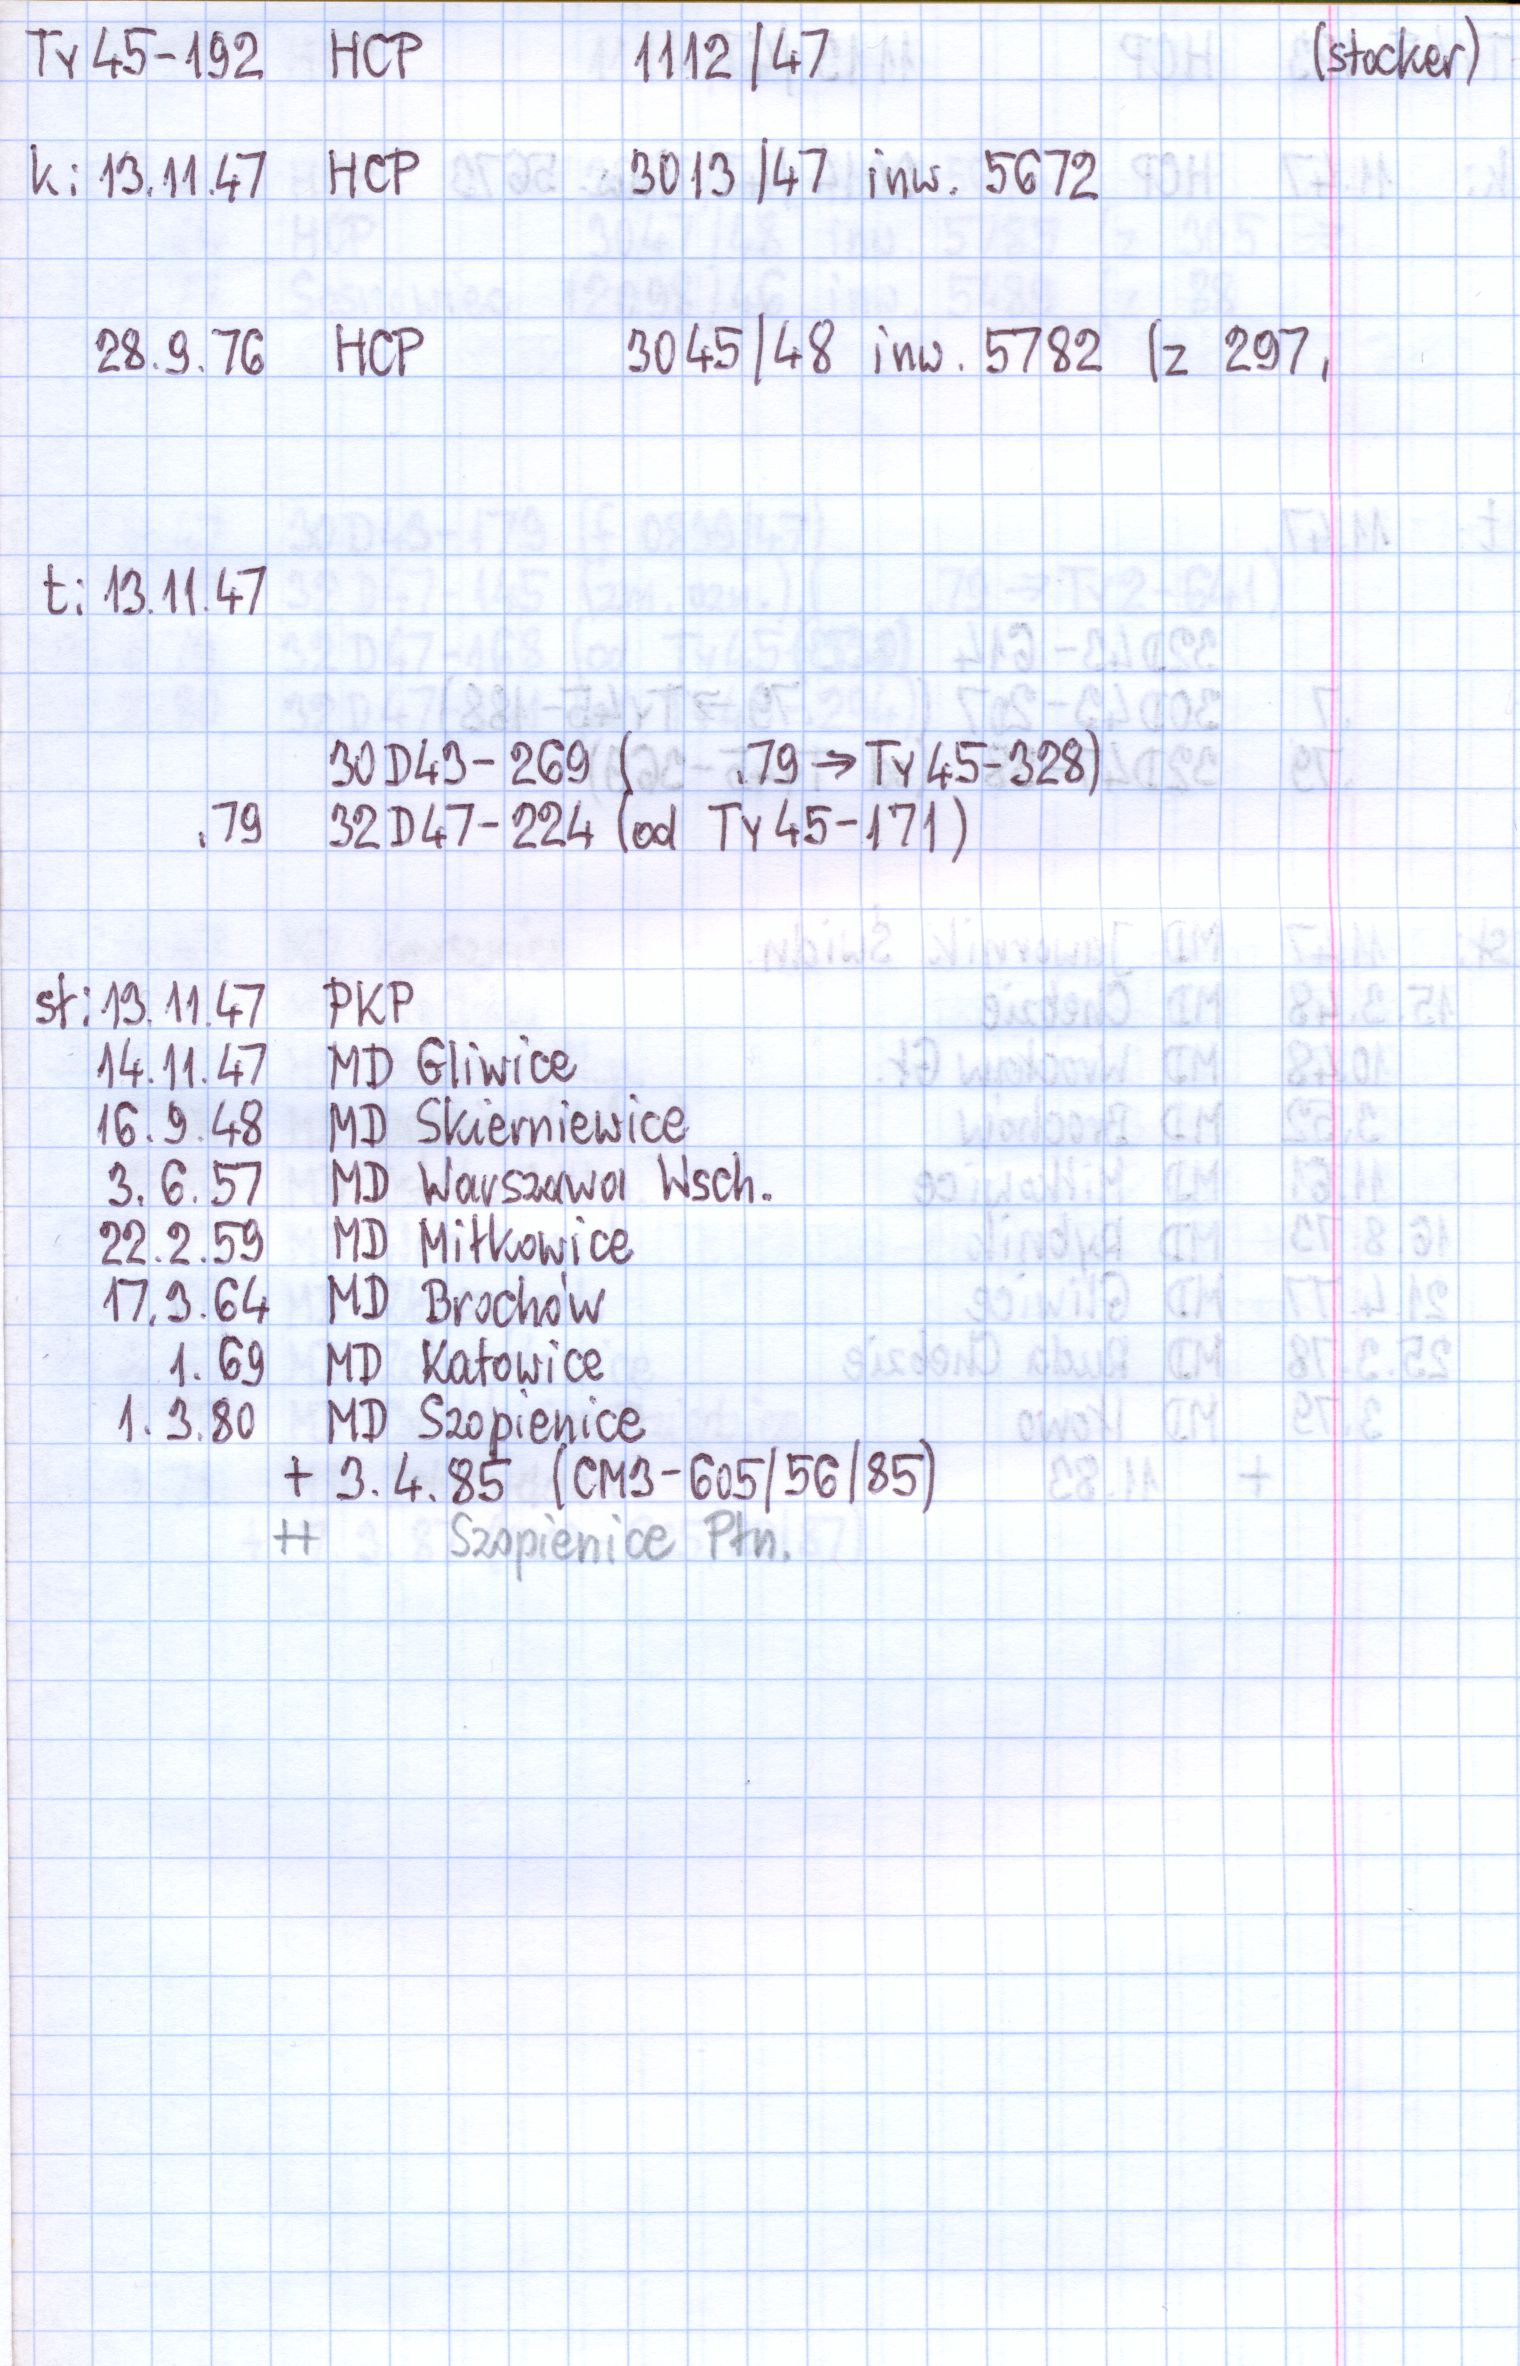 Ty45-192 HCP 1112/47 (stocker)
k: 13.11.47 HCP 3013/47 inw. 5672
28.9.76 HCP 3045/48 inw. 5782 (z 297,
t: 13.11.47
30D43-269 ( .79 → Ty45-328)
.79 32D47-224 (od Ty45-171)
st: 13.11.47 PKP
14.11.47 MD Gliwice
16.9.48 MD Skierniewice
3.6.57 MD Warszawa Wsch.
22.2.59 MD Miłkowice
17.3.64 MD Brochów
1.69 MD Katowice
1.3.80 MD Szopienice
+ 3.4.85 (CM3-605/56/85)
++ Szopienice Płn.